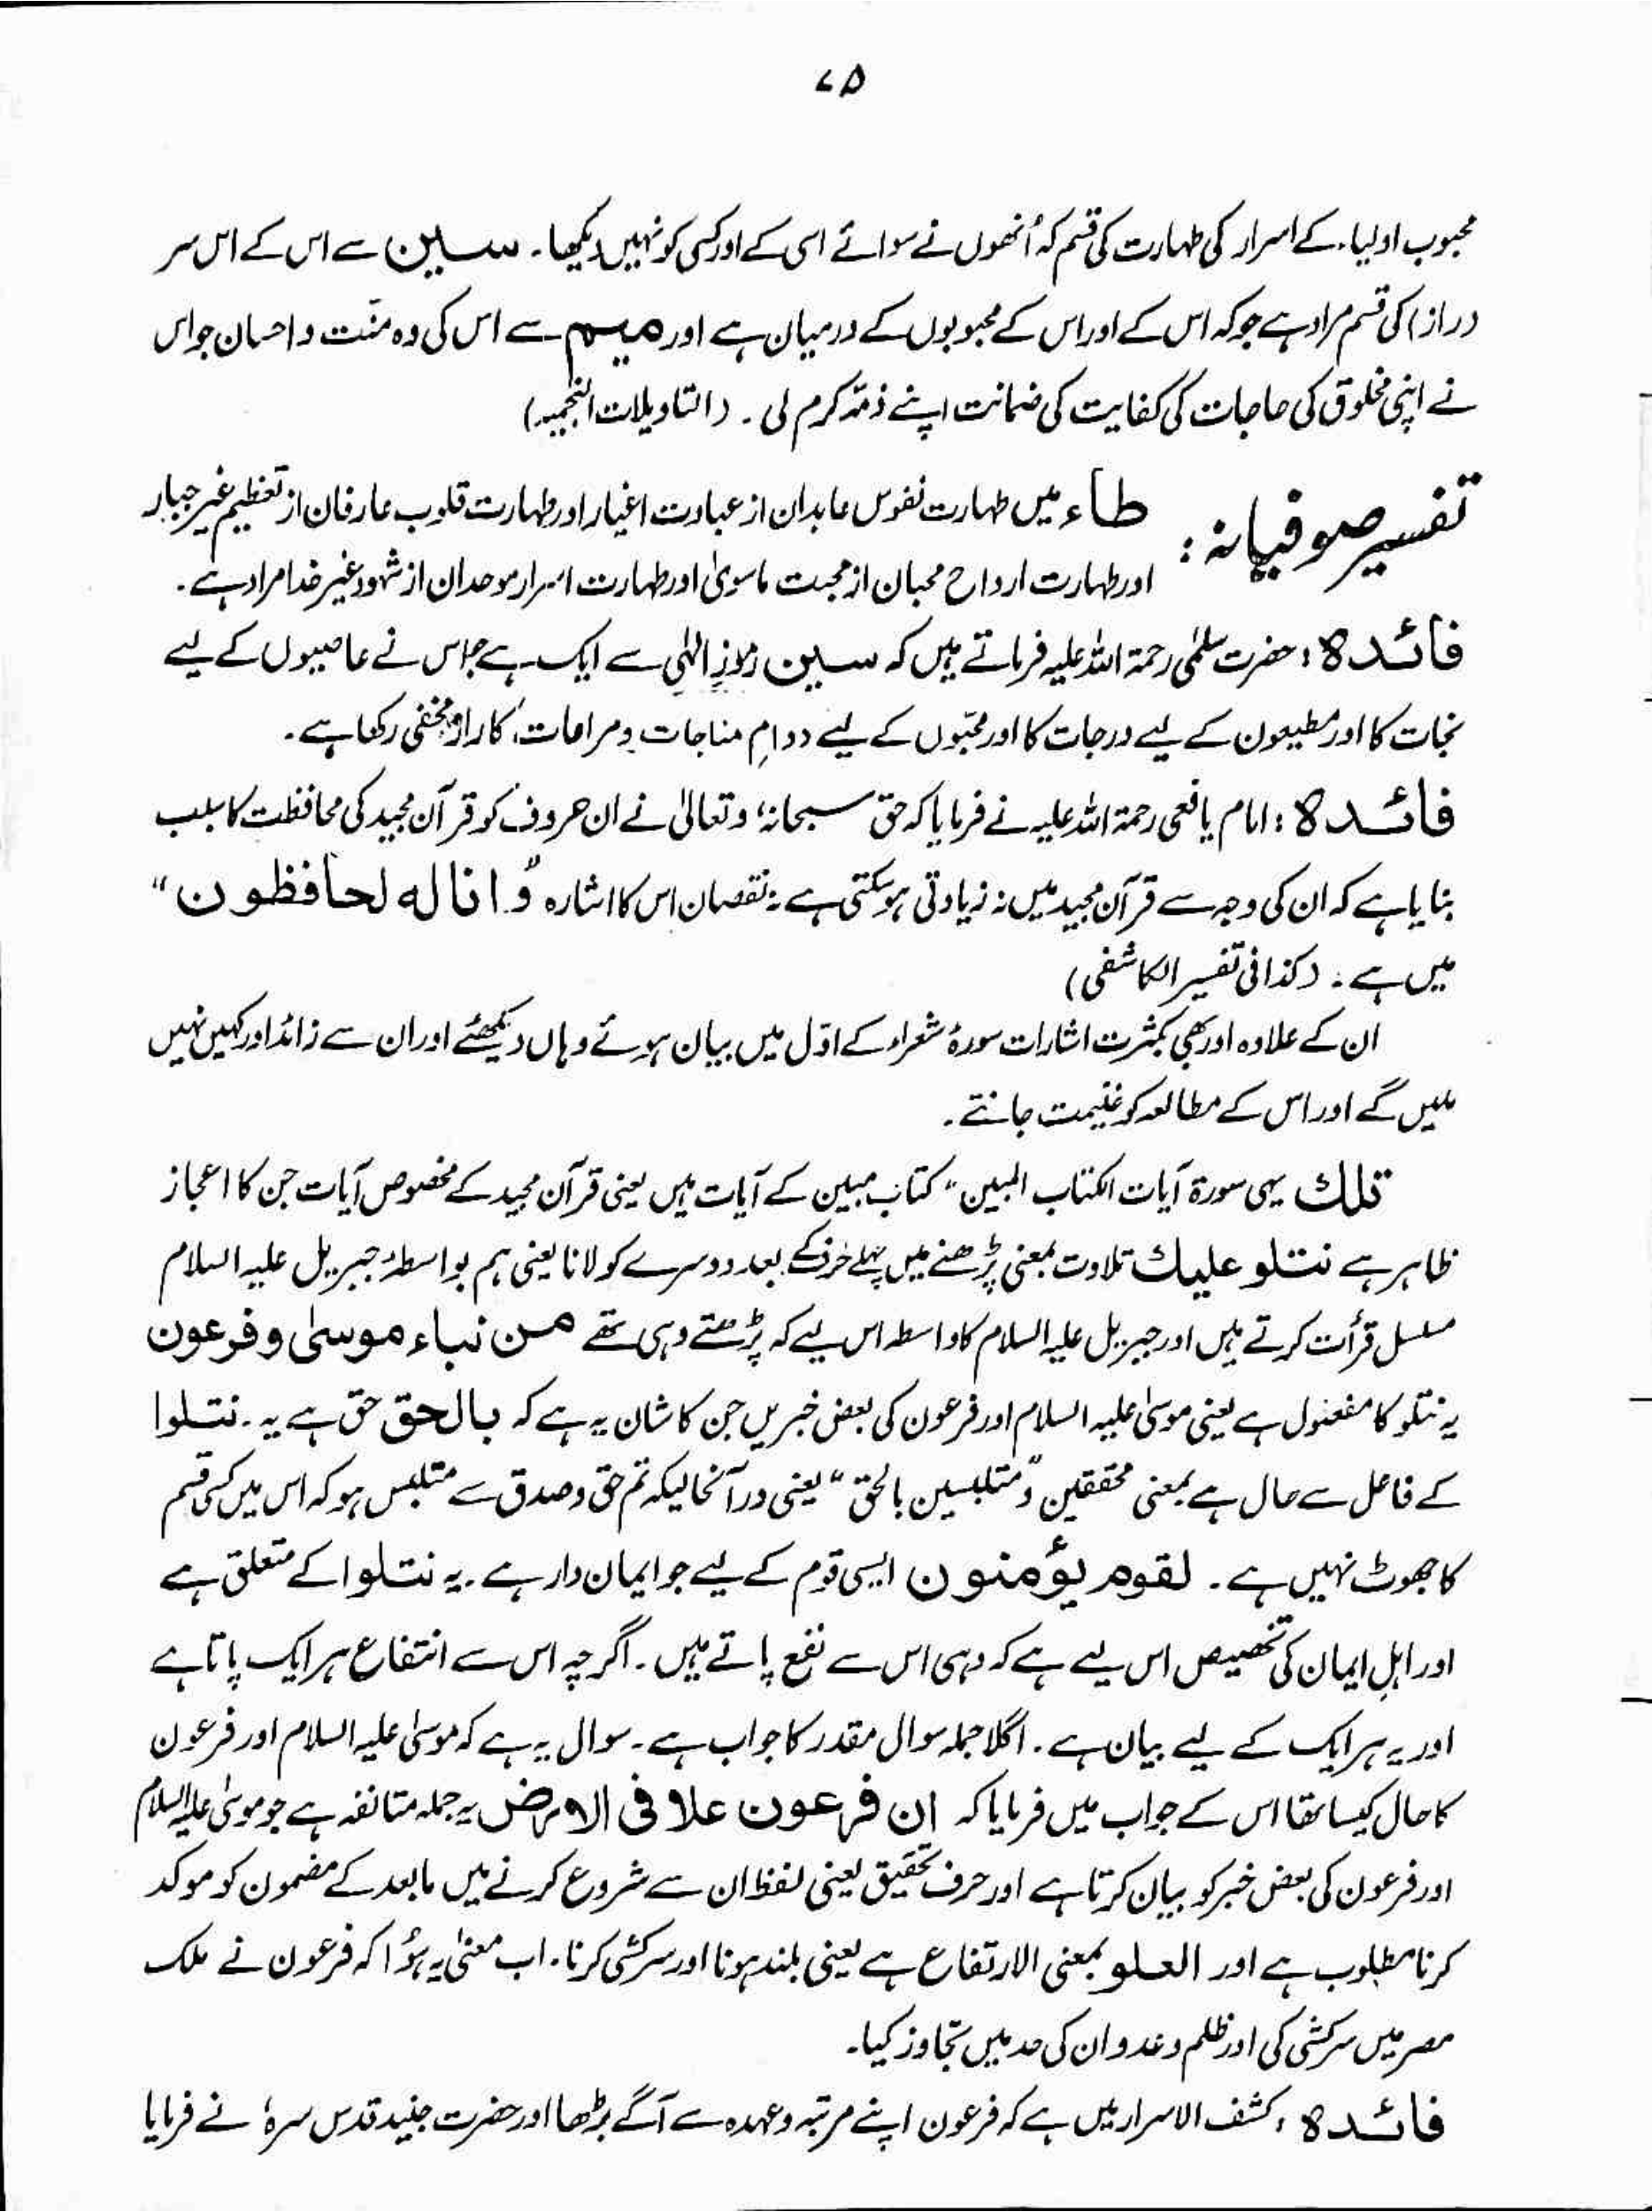 ۷۵
محبوب اولیاء کے اسرار کی طہارت کی قسم کہ اُنھوں نے سوائے اسی کے اور کسی کو نہیں دیکھا۔ سین سے اس کے اس سر
(راز) کی قسم مراد ہے جو کہ اس کے اور اس کے محبوبوں کے درمیان ہے اور میم سے اس کی وہ منّت و احسان جو اس
نے اپنی مخلوق کی حاجات کی کفایت کی ضمانت اپنے ذمّہ کرم لی۔ (التاویلات النجمیہ)
تفسیر صوفیانہ : طاء میں طہارت نفوس عابدان از عبادت اغیار اور طہارت قلوب عارفان از تعظیم غیر جبار
اور طہارت ارواح محبان از محبت ماسویٰ اور طہارت اسرار موحدان از شہود غیر خدا مراد ہے۔
فائدہ : حضرت سلمی رحمۃ اللہ علیہ فرماتے ہیں کہ سین رموزِ الٰہی سے ایک ہے جو اس نے عاصیوں کے لیے
نجات کا اور مطیعون کے لیے درجات کا اور محبّوں کے لیے دوامِ مناجات و مراعات کا راز مخفی رکھا ہے۔
فائدہ : امام یافعی رحمۃ اللہ علیہ نے فرمایا کہ حق سبحانہٗ وتعالیٰ نے ان حروف کو قرآن مجید کی محافظت کا سبب
بنایا ہے کہ ان کی وجہ سے قرآن مجید میں نہ زیادتی ہو سکتی ہے نہ نقصان اس کا اشارہ "وانا له لحافظون"
میں ہے۔ (کذا فی تفسیر الکاشفی)
ان کے علاوہ اور بھی بکثرت اشارات سورۂ شعراء کے اوّل میں بیان ہوئے وہاں دیکھئے اور ان سے زائد اور کہیں نہیں
ملیں گے اور اس کے مطالعہ کو غنیمت جانتے۔
تلك یہی سورۃ آیات الکتاب المبین، کتاب مبین کے آیات ہیں یعنی قرآن مجید کے مخصوص آیات جن کا اعجاز
ظاہر ہے نتلو علیك تلاوت بمعنی پڑھنے میں پہلے حرف کے بعد دوسرے کو لانا یعنی ہم بواسطۂ جبریل علیہ السلام
مسلسل قرأت کرتے ہیں اور جبریل علیہ السلام کا واسطہ اس لیے کہ پڑھتے وہی تھے من نباء موسیٰ وفرعون
یہ نتلو کا مفعول ہے یعنی موسیٰ علیہ السلام اور فرعون کی بعض خبریں جن کا شان یہ ہے کہ بالحق حق ہے یہ۔ نتلوا
کے فاعل سے حال ہے بمعنی محققین و "متلبسین بالحق" یعنی درآنحالیکہ تم حق و صدق سے متلبس ہو کہ اس میں کسی قسم
کا جھوٹ نہیں ہے۔ لقوم یؤمنون ایسی قوم کے لیے جو ایمان دار ہے۔ یہ نتلوا کے متعلق ہے
اور اہلِ ایمان کی تخصیص اس لیے ہے کہ وہی اس سے نفع پاتے ہیں۔ اگرچہ اس سے انتفاع ہر ایک پاتا ہے
اور یہ ہر ایک کے لیے بیان ہے۔ اگلا جملہ سوال مقدر کا جواب ہے۔ سوال یہ ہے کہ موسیٰ علیہ السلام اور فرعون
کا حال کیسا تھا اس کے جواب میں فرمایا کہ ان فرعون علا فی الارض یہ جملہ متانفہ ہے جو موسیٰ علیہ السلام
اور فرعون کی بعض خبر کو بیان کرتا ہے اور حرف تحقیق یعنی لفظ ان سے شروع کرنے میں مابعد کے مضمون کو موکد
کرنا مطلوب ہے اور العلو بمعنی الارتفاع ہے یعنی بلند ہونا اور سرکشی کرنا۔ اب معنیٰ یہ ہُوا کہ فرعون نے ملک
مصر میں سرکشی کی اور ظلم و عدوان کی حد میں تجاوز کیا۔
فائدہ : کشف الاسرار میں ہے کہ فرعون اپنے مرتبہ و عہدہ سے آگے بڑھا اور حضرت جنید قدس سرہٗ نے فرمایا